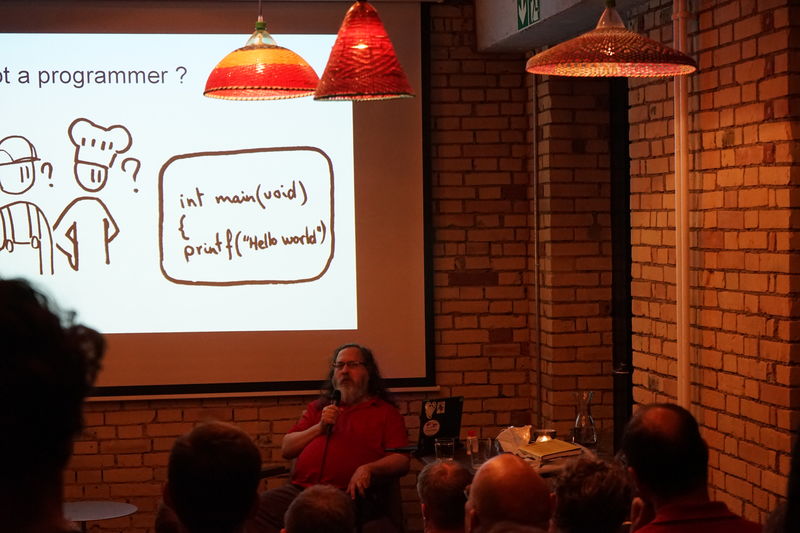 ot a programmer ?
?
?
int main(void)
{
printf("Hello world")